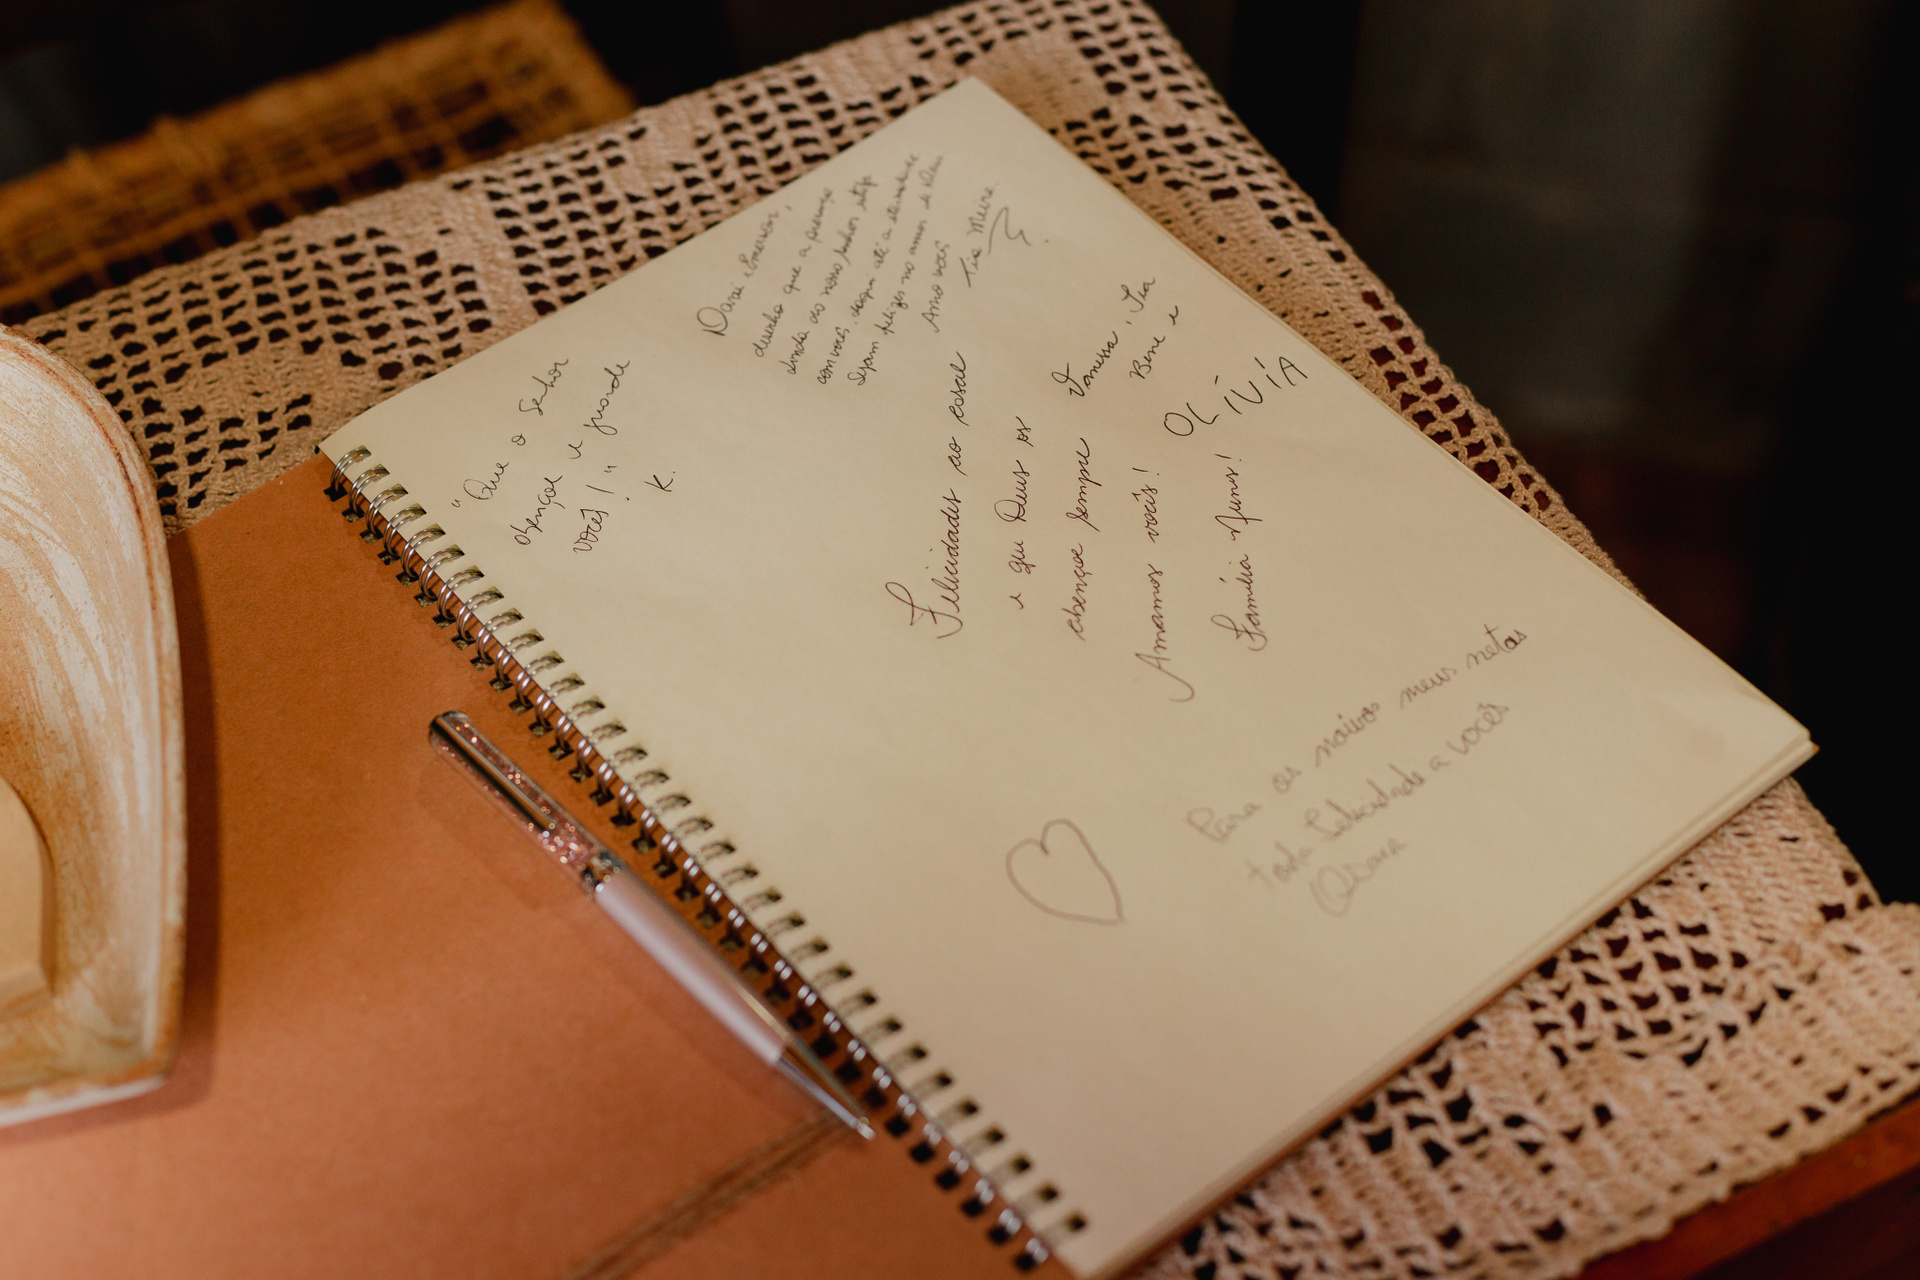 "Que o Senhor
abençoe e guarde
vocês!"
K.
e Emerson,
desejo que a presença
linda do nosso Senhor
com vocês, daqui até a eternidade
Sejam felizes no amor de Deus
Amo vocês
Tia Meire.
Felicidades ao casal
e que Deus os
abençoe sempre
Amamos vocês!
Família Nunes!
Vanessa, Lia
Bene e
OLÍVIA
Para os noivos meus netos
toda felicidade a vocês